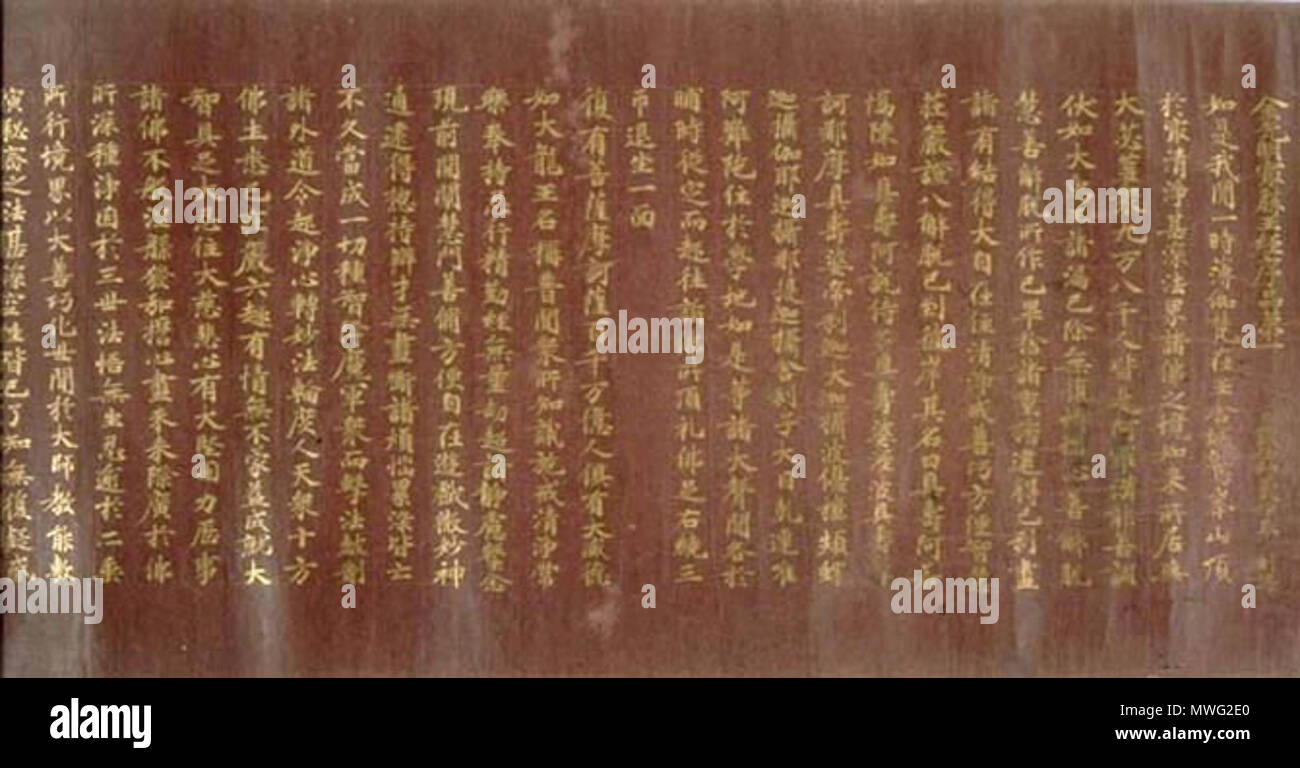 金光明最勝王經序品第一
如是我聞一時薄伽梵在王舍城鷲峯山頂
於最清淨甚深法界諸佛之境如來所居與
大苾芻眾九万八千人皆是阿羅漢能善調
伏如大象王諸漏已除無復煩惱心善解脫
慧善解脫所作已畢捨諸重擔逮得己利盡
諸有結得大自在住清淨戒善巧方便智慧
莊嚴證八解脫已到彼岸其名曰具壽阿若
憍陳如具壽阿說侍多具壽婆濕波具壽摩
訶那摩具壽婆帝利迦大迦攝波優樓頻螺
迦攝伽耶迦攝那提迦攝舍利子大目乹連唯
阿難陀住於學地如是等諸大聲聞各於
晡時從定而起往詣佛所頂礼佛足右繞三
帀退坐一面
復有菩薩摩訶薩百千万億人俱有大威德
如大龍王名稱普聞眾所知識施戒清淨常
樂奉持忍行精勤經無量劫超諸靜慮繫念
現前開闡慧門善修方便自在遊戲微妙神
通逮得總持辯才無盡斷諸煩惱累染皆亡
不久當成一切種智降魔軍眾而擊法鼓制
諸外道令起淨心轉妙法輪度人天眾十方
佛土悉已莊嚴六趣有情無不蒙益成就大
智具足大忍住大慈悲心有大堅固力歷事
諸佛不般涅槃發弘擔心盡未來際廣於佛
所深種淨因於三世法悟無生忍逾於二乘
所行境界以大善巧化世間於大師教能敷
演秘密之法甚深空性皆已了知無復疑惑
alamy
Image ID: MWG2E0
www.alamy.com